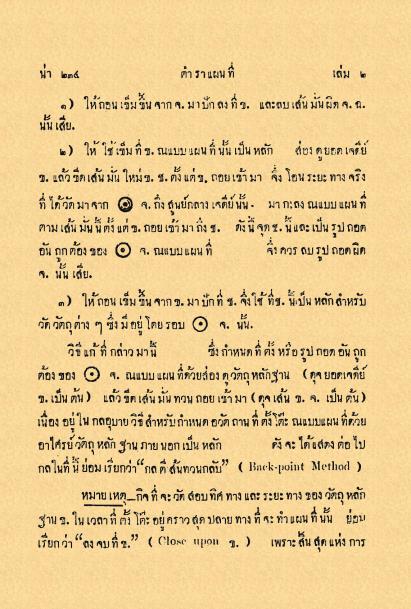 น่า ๒๓๔ ตำราแผนที่ เล่ม ๒
๑) ให้ถอนเข็มขึ้นจาก จ. มาปักลงที่ ข. และลบเส้นมั่นผิด จ. ฉ.
นั้นเสีย.
๒) ให้ใช้เข็มที่ ข. ณแบบแผนที่นั้นเป็นหลัก ส่องดูยอดเจดีย์
ข. แล้วขีดเส้นมั่นใหม่ ข. ช. ตั้งแต่ ข. ถอยเข้ามา จึ่งโอนระยะทางจริง
ที่ได้วัดมาจาก ⊙ จ. ถึงศูนย์กลางเจดีย์นั้น. มากะลงณแบบแผนที่
ตามเส้นมั่นนี้ตั้งแต่ ข. ถอยเข้ามาถึง ช. ดังนี้จุด ช. นี้และเป็นรูปถอด
อันถูกต้องของ ⊙ จ. ณแบบแผนที่ จึ่งควรลบรูปถอดผิด
จ. นั้นเสีย.
๓) ให้ถอนเข็มขึ้นจาก ข. มาปักที่ ช. จึ่งใช้ที่ ช. นี้เป็นหลักสำหรับ
วัดวัตถุต่าง ๆ ซึ่งมีอยู่โดยรอบ ⊙ จ. นั้น.
วิธีแก้ที่กล่าวมานี้ ซึ่งกำหนดที่ตั้งหรือรูปถอดอันถูก
ต้องของ ⊙ จ. ณแบบแผนที่ด้วยส่องดูวัตถุหลักฐาน (ดุจยอดเจดีย์
ข. เป็นต้น) แล้วขีดเส้นมั่นทวนถอยเข้ามา (ดุจเส้น ข. จ. เป็นต้น)
เนื่องอยู่ในกลอุบายวิธีสำหรับกำหนดอวัตถานที่ตั้งโต๊ะณแบบแผนที่ด้วย
อาไศรย์วัตถุหลักฐานภายนอกเป็นหลัก ดังจะได้แสดงต่อไป
กลในที่นี้ย่อมเรียกว่า “กลตีเส้นทวนกลับ” ( Back-point Method )
หมายเหตุ—กิจที่จะวัดสอบทิศทางและระยะทางของวัตถุหลัก
ฐาน ข. ในเวลาที่ตั้งโต๊ะอยู่คราวสุดปลายทางที่จะทำแผนที่นั้น ย่อม
เรียกว่า “ลงจบที่ ข.” ( Close upon ข. ) เพราะสิ้นสุดแห่งการ